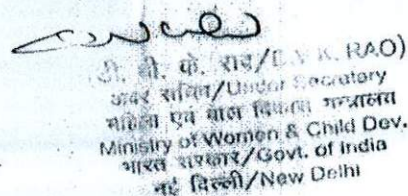 (डी. वी. के. राव/D.V.K. RAO)
अवर सचिव/Under Secretary
महिला एवं बाल विकास मन्त्रालय
Ministry of Women & Child Dev.
भारत सरकार/Govt. of India
नई दिल्ली/New Delhi